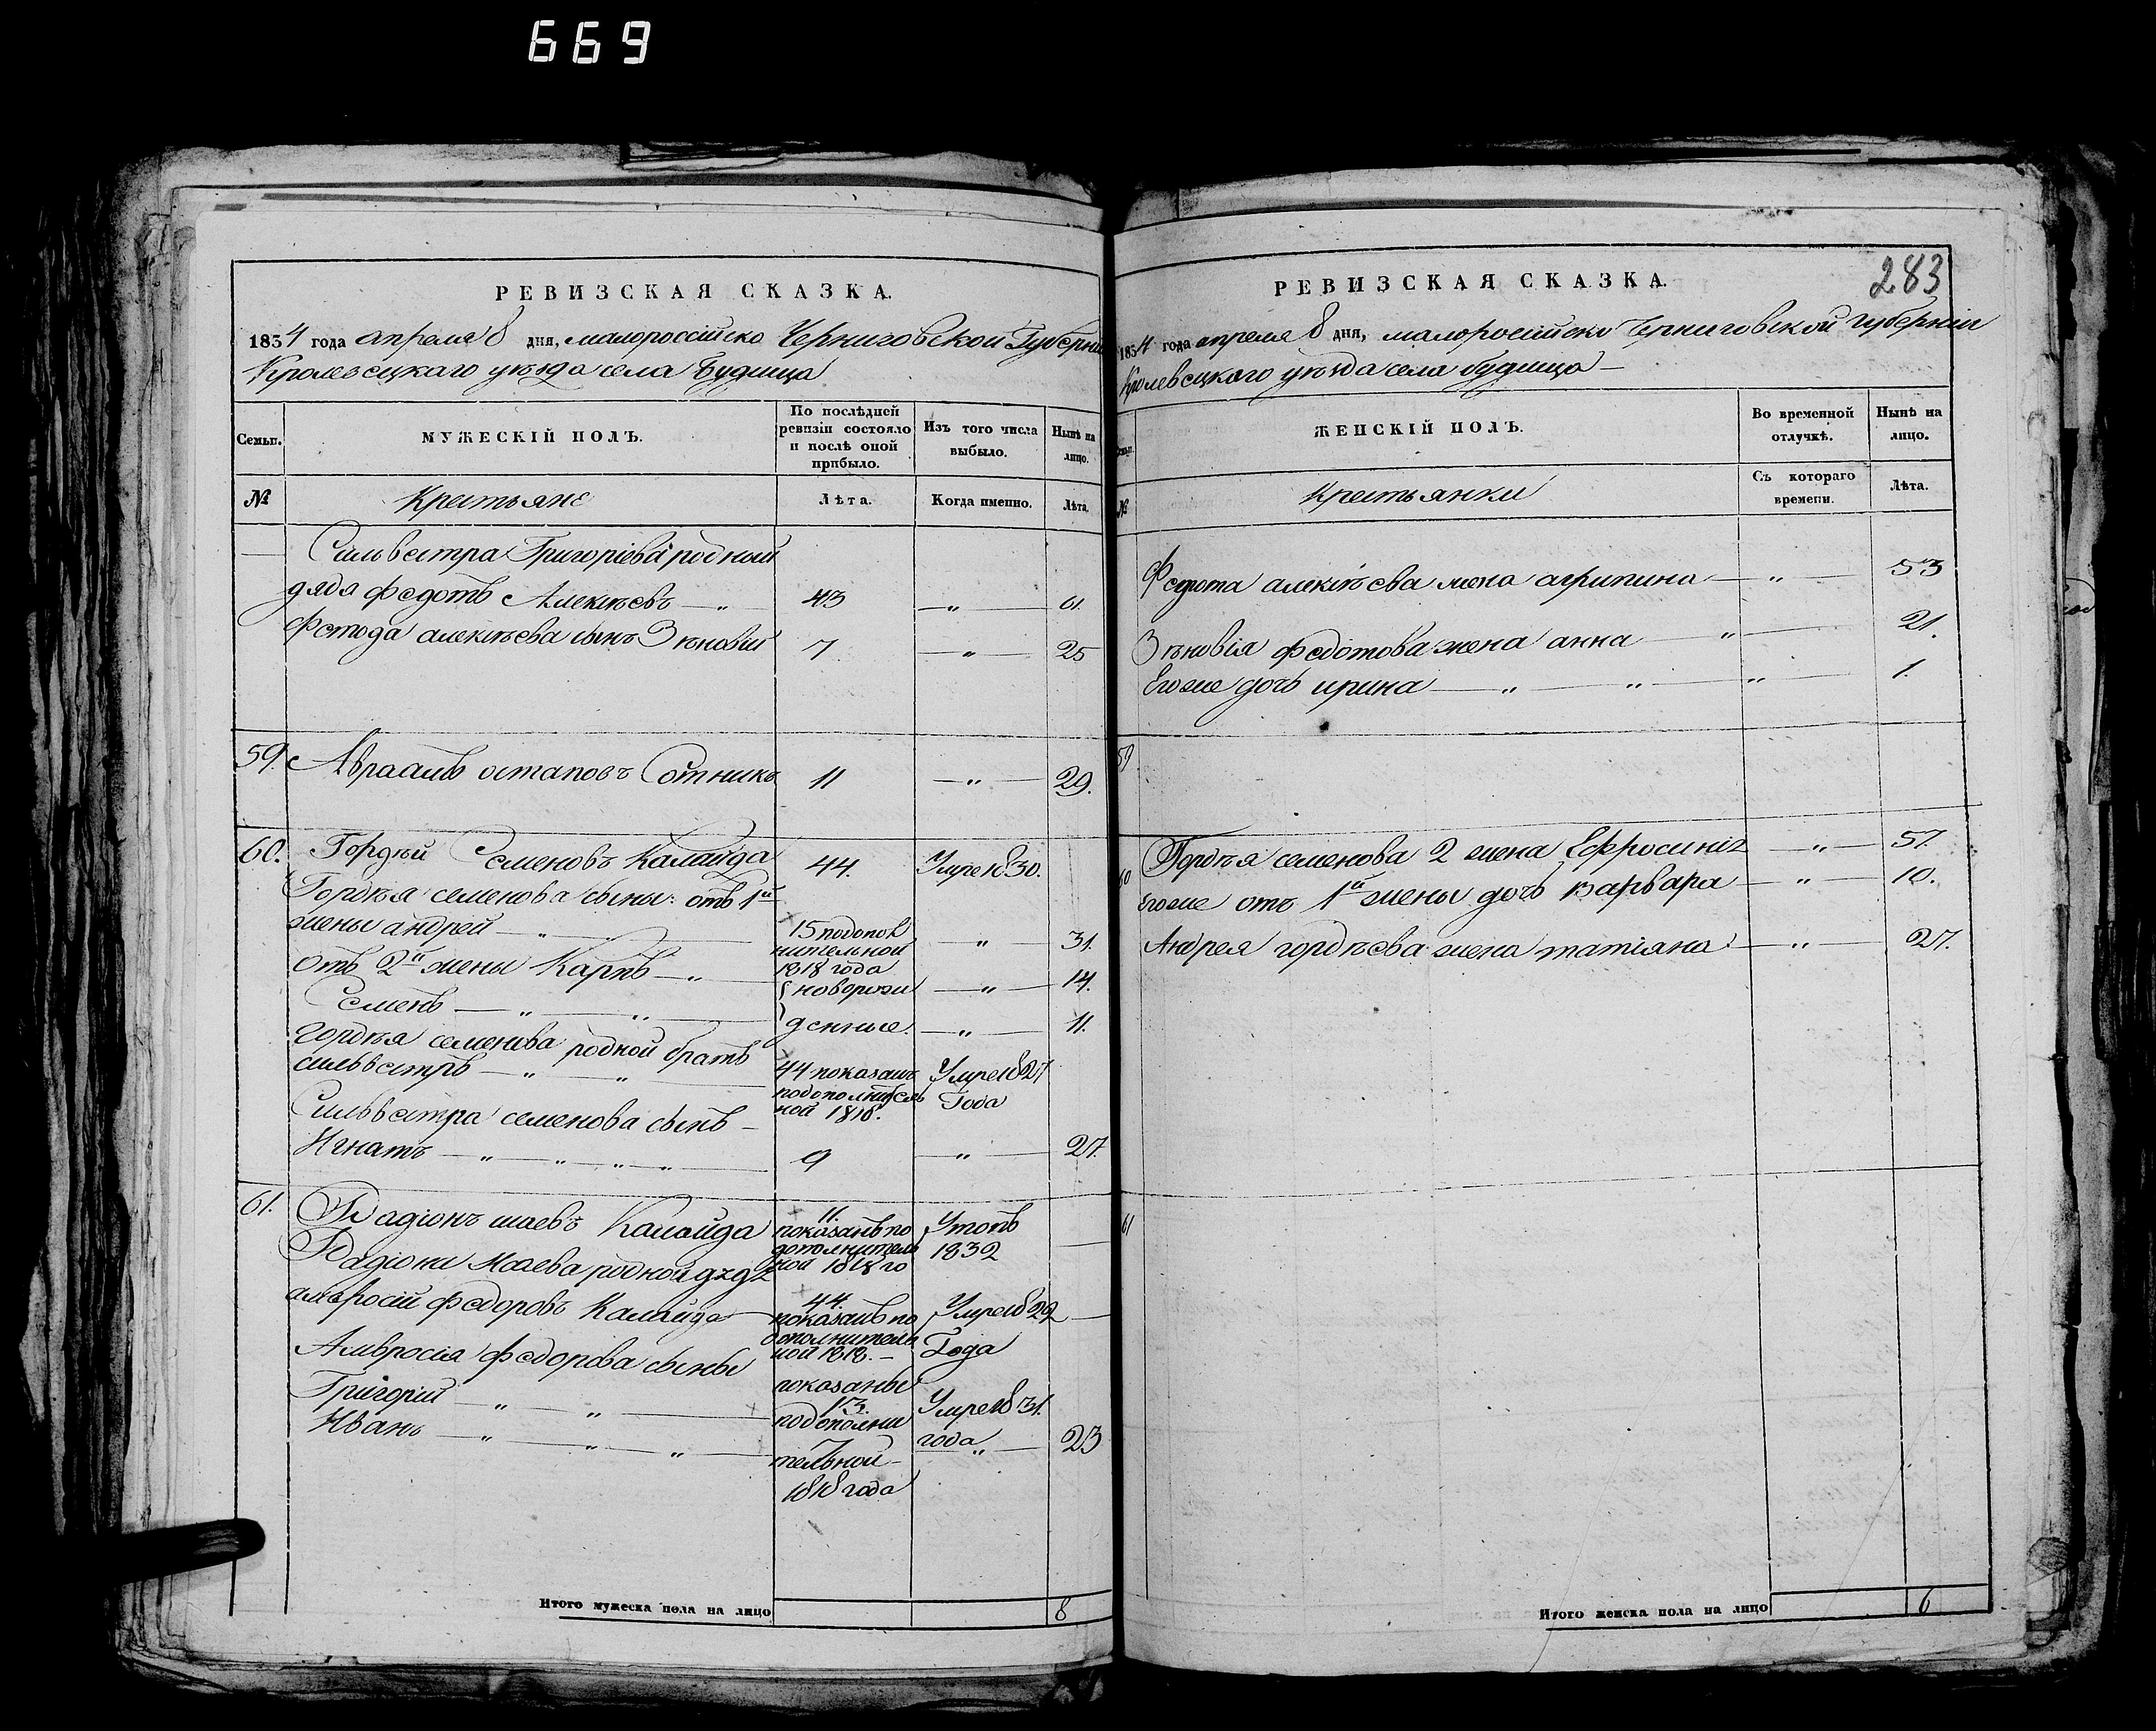 669
РЕВИЗСКАЯ СКАЗКА.
1834 года апреля 8 дня, малороссійско Черниговской Губерніи
Кролевецкаго уезда села Будища
Семьи.
МУЖЕСКІЙ ПОЛЪ.
По послѣдней ревизіи состояло и послѣ оной прибыло.
Изъ того числа выбыло.
Нынѣ на лицо.
№
Крестьяне
Лѣта.
Когда именно.
Лѣта.
Сильвестра Григоріева родный
дядя Федотъ Алексѣевъ — " 43 — " — 61.
Федота алексѣева сынъ Зѣновій 7 — " — 25
59. Авраамъ остаповъ Сотникъ 11 — " — 29.
60. Гордѣй Семеновъ Калайда 44. Умре 1830.
Гордѣя семенова сыны: отъ 1й
жены андрей — " — 15 по допол нительной 1818 года — " — 31.
отъ 2й жены Карпъ — " новорож — " — 14.
Семенъ — " — " — денные. — " — 11.
гордѣя семенова родной братъ
сильвестръ — " — " — 44 показанъ по дополнитель ной 1818. Умре 1827 Года
Сильвестра семенова сынъ —
Игнатъ — " — " — " — " — 9 — " — 27.
61. Радіонъ Калайда 11. показанъ по дополнитель ной 1818 го Утопъ 1832
Радіона родной дядя
амвросій Федоровъ Калайда 44. показанъ по дополнитель ной 1818. — Умре 1829 Года
Амвросія Федорова сыны показаны
Григорій — " — " — 13. по дополни Умре 1831. года
Иванъ — " — " — " — тельной 1818 года " — 23
Итого мужеска пола на лицо 8
283
РЕВИЗСКАЯ СКАЗКА.
1834 года апреля 8 дня, малоросійско Черниговской губерніи
Кролевецкого уезда села будища —
Семьи.
ЖЕНСКІЙ ПОЛЪ.
Во временной отлучкѣ.
Нынѣ на лицо.
№
Крестьянки
Съ котораго времени.
Лѣта.
Федота алексѣева жена агрипина — " — 53
Зѣновія федотова жена анна — " — 21.
Его же дочь ирина — " — " — " — 1.
59
60 Гордѣя семенова 2 жена Ефросинія — " — 57.
Его же отъ 1й жены дочь варвара — " — 10.
Андрея гордѣева жена татіяна — " — 27.
61
Итого женска пола на лицо 6